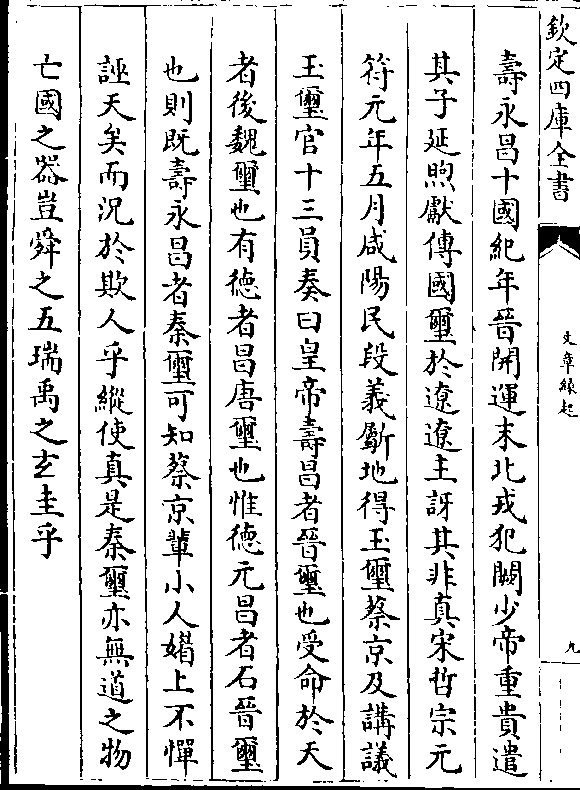 欽定四庫全書
文章緣起
九
壽永昌十國紀年晉開運末北戎犯闕少帝重貴遣
其子延煦獻傳國璽於遼遼主訝其非真宋哲宗元
符元年五月咸陽民段義斸地得玉璽蔡京及講議
玉璽官十三員奏曰皇帝壽昌者晉璽也受命於天
者後魏璽也有德者昌唐璽也惟德元昌者石晉璽
也則既壽永昌者秦璽可知蔡京輩小人媢上不憚
誣天矣而況於欺人乎縱使真是秦璽亦無道之物
亡國之器豈舜之五瑞禹之玄圭乎